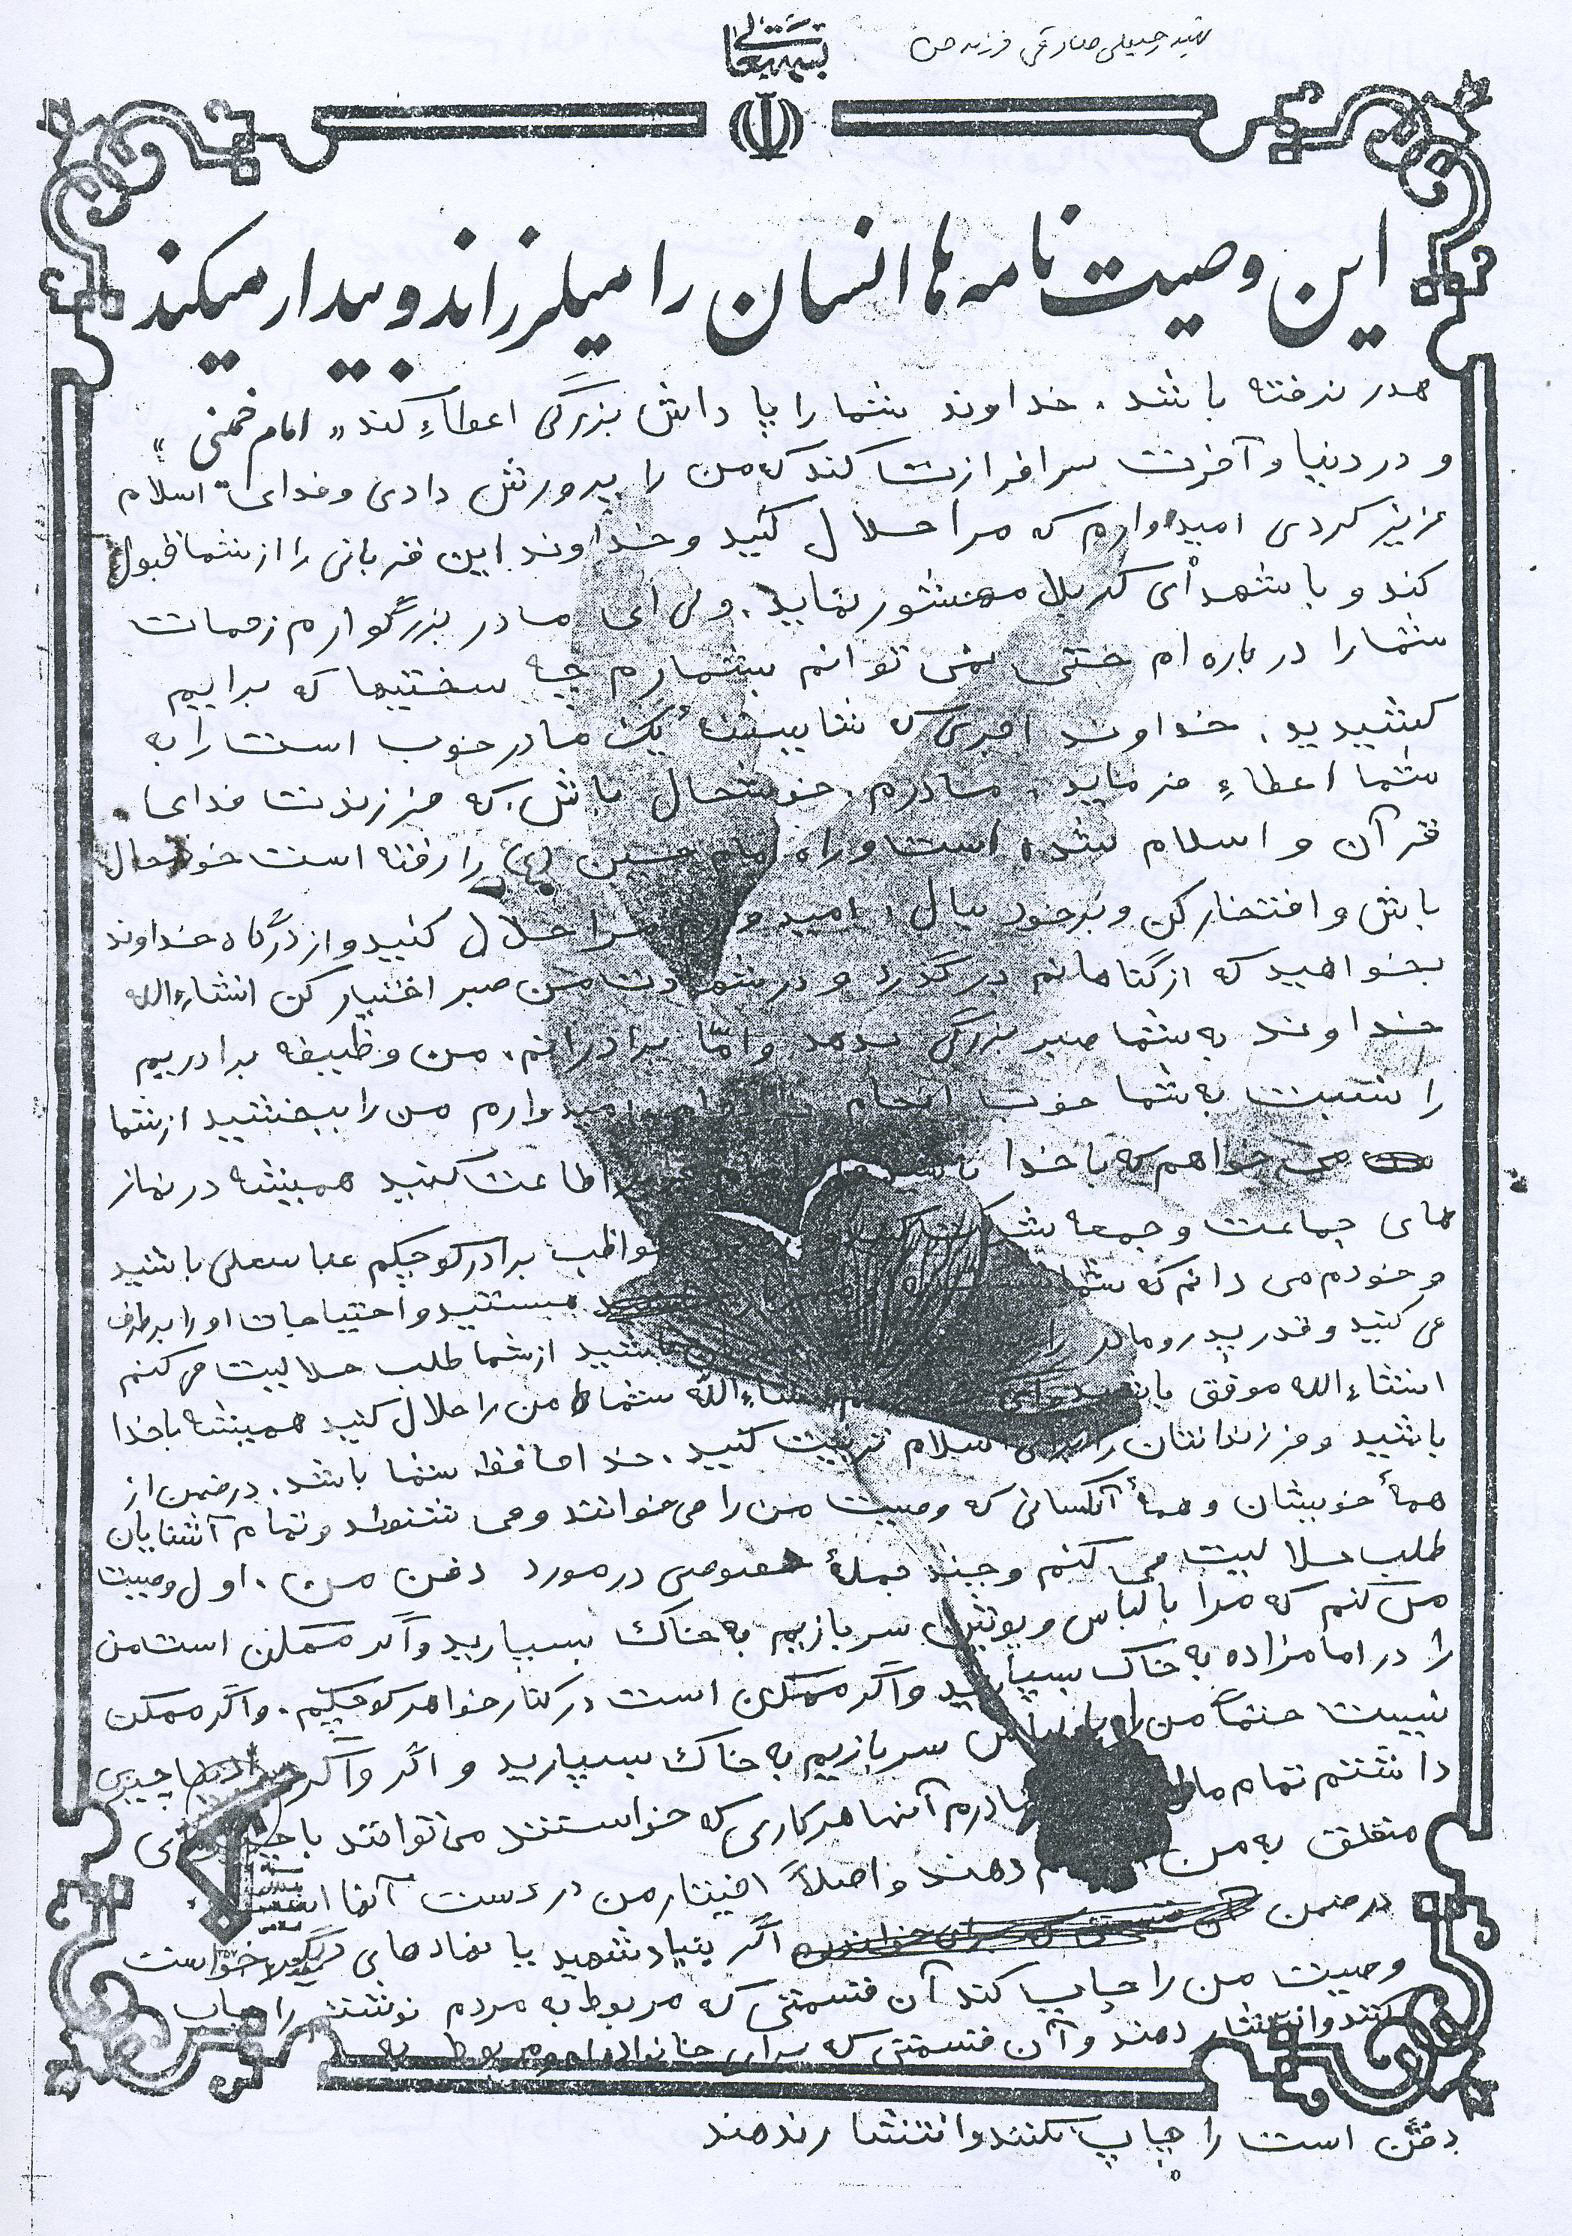 بسمه تعالی
شهید رجبعلی صادقی فرزند حسن
این وصیت نامه ها انسان را میلرزاند و بیدار میکند
هدر نرفته باشد. خداوند شما را پاداش بزرگی اعطاء کند « امام خمینی »
و در دنیا و آخرت سرافرازت کند که من را پرورش دادی و فدای اسلام
عزیز کردی امیدوارم که مرا حلال کنید و خداوند این قربانی را از شما قبول
کند و با شهدای کربلا محشور نماید. ولی ای مادر بزرگوارم زحمات
شما را درباره ام حتی نمی توانم بشمارم چه سختیها که برایم
کشیدید. خداوند اجری که شایسته یک مادر خوب است را به
شما اعطاء فرماید. مادرم خوشحال باش. که فرزندت فدای
قرآن و اسلام شده است و راه امام حسین (ع) را رفته است خوشحال
باش و افتخار کن و بر خود ببال، امیدوارم مرا حلال کنید و از درگاه خداوند
بخواهید که از گناهانم در گذرد و در شهادت من صبر اختیار کن انشاءالله
خداوند به شما صبر بزرگی بدهد و امّا برادرانم. من وظیفه برادریم
را نسبت به شما خوب انجام امیدوارم من را ببخشید از شما
می خواهم که با خدا اطاعت کنید همیشه در نماز
های جماعت و جمعه شرکت کنید مواظب برادر کوچکم عباسعلی باشید
و خودم می دانم که شما هستید و احتیاجات او را برطرف
می کنید و قدر پدر و مادر را باشید از شما طلب حلالیت می کنم
انشاءالله موفق باشید شما من را حلال کنید همیشه با خدا
باشید و فرزندانتان را برای اسلام تربیت کنید. خداحافظ شما باشد. در ضمن از
همهٔ خویشان و همهٔ آنکسانی که وصیت من را می خوانند و می شنوند و تمام آشنایان
طلب حلالیت می کنم و چند جملهٔ خصوصی در مورد دفن من. اول وصیت
می کنم که مرا با لباس و پوتین سربازیم به خاک بسپارید و اگر ممکن است من
را در امامزاده به خاک بسپارید و اگر ممکن است در کنار خواهر کوچکم. و اگر ممکن
نیست حتماً من را با لباس سربازیم به خاک بسپارید و اگر چیزی
داشتم تمام مادرم آنها هر کاری که خواستند می توانند با
متعلق به من دهند و اصلاً اختیار من در دست آنها
در ضمن اگر بنیاد شهید یا نهادهای دیگر خواست
وصیت من را چاپ کند آن قسمتی که مربوط به مردم نوشتم را چاپ
کنند و انتشار دهند و آن قسمتی که برای خانواده ام و مربوط به
دفن است را چاپ نکنند و انتشار ندهند